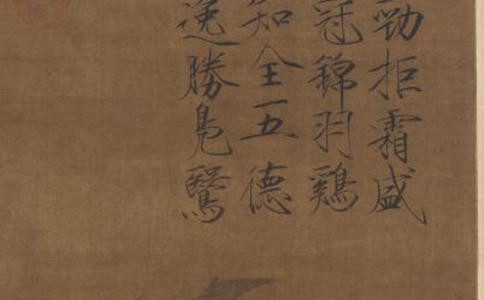 勁拒霜盛
冠錦羽鷄
知全五德
逸勝鳧鷖